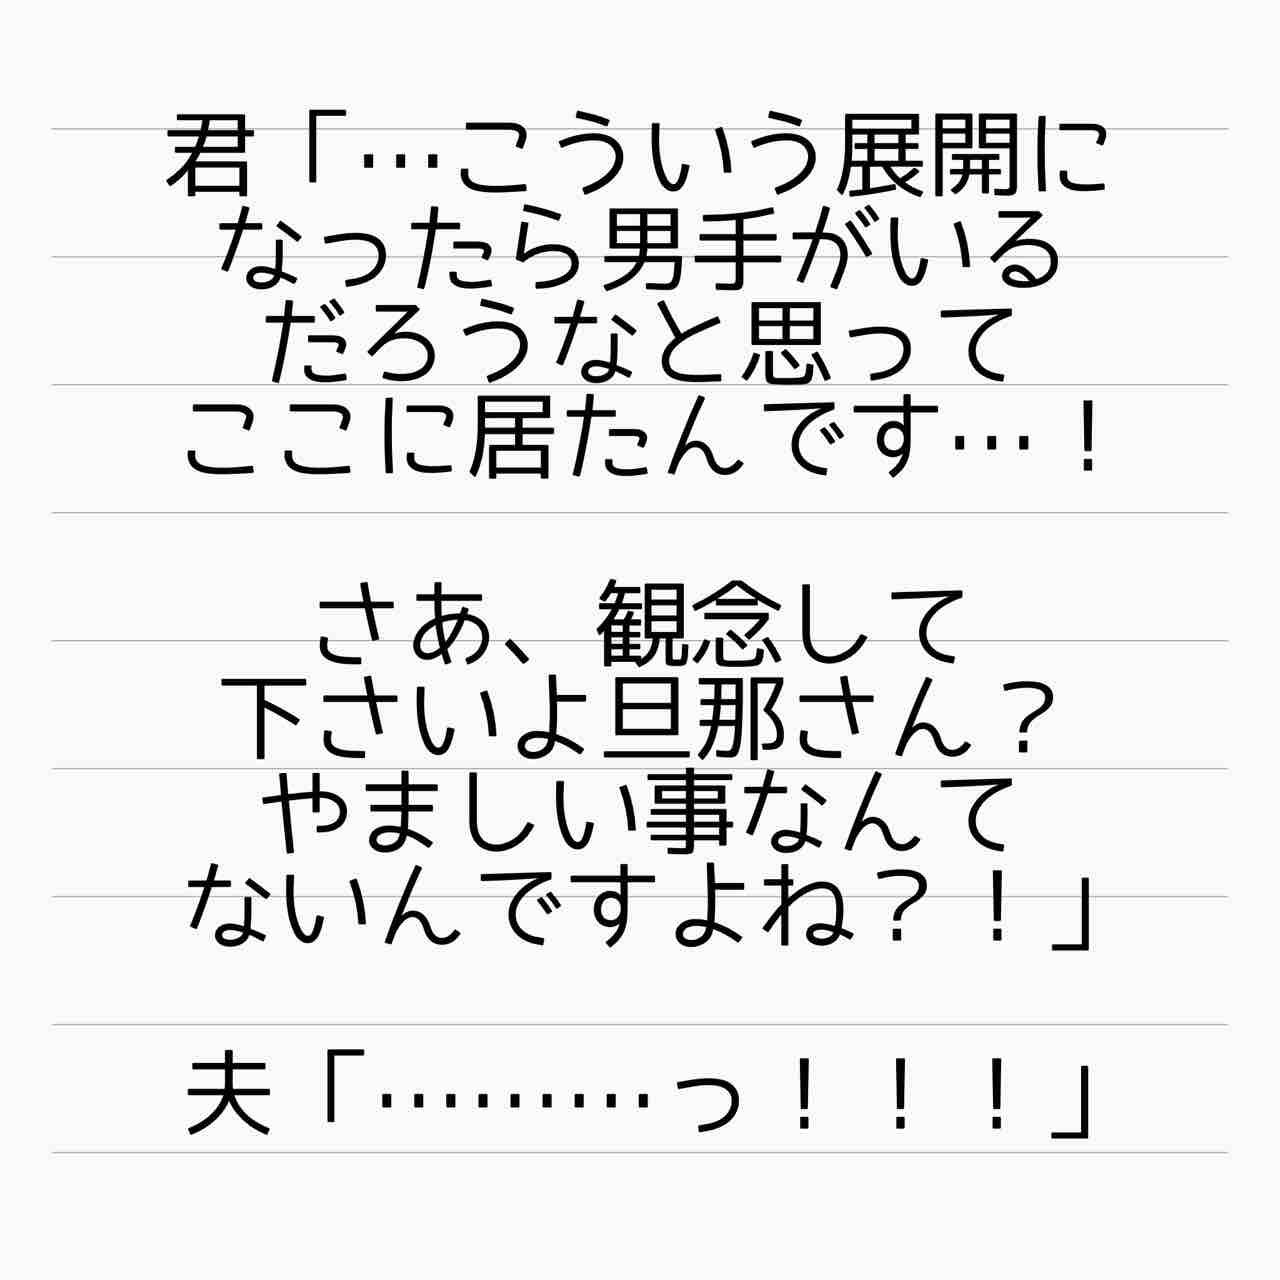 君「…こういう展開に
なったら男手がいる
だろうなと思って
ここに居たんです…！
さあ、観念して
下さいよ旦那さん？
やましい事なんて
ないんですよね？！」
夫「………っ！！！」